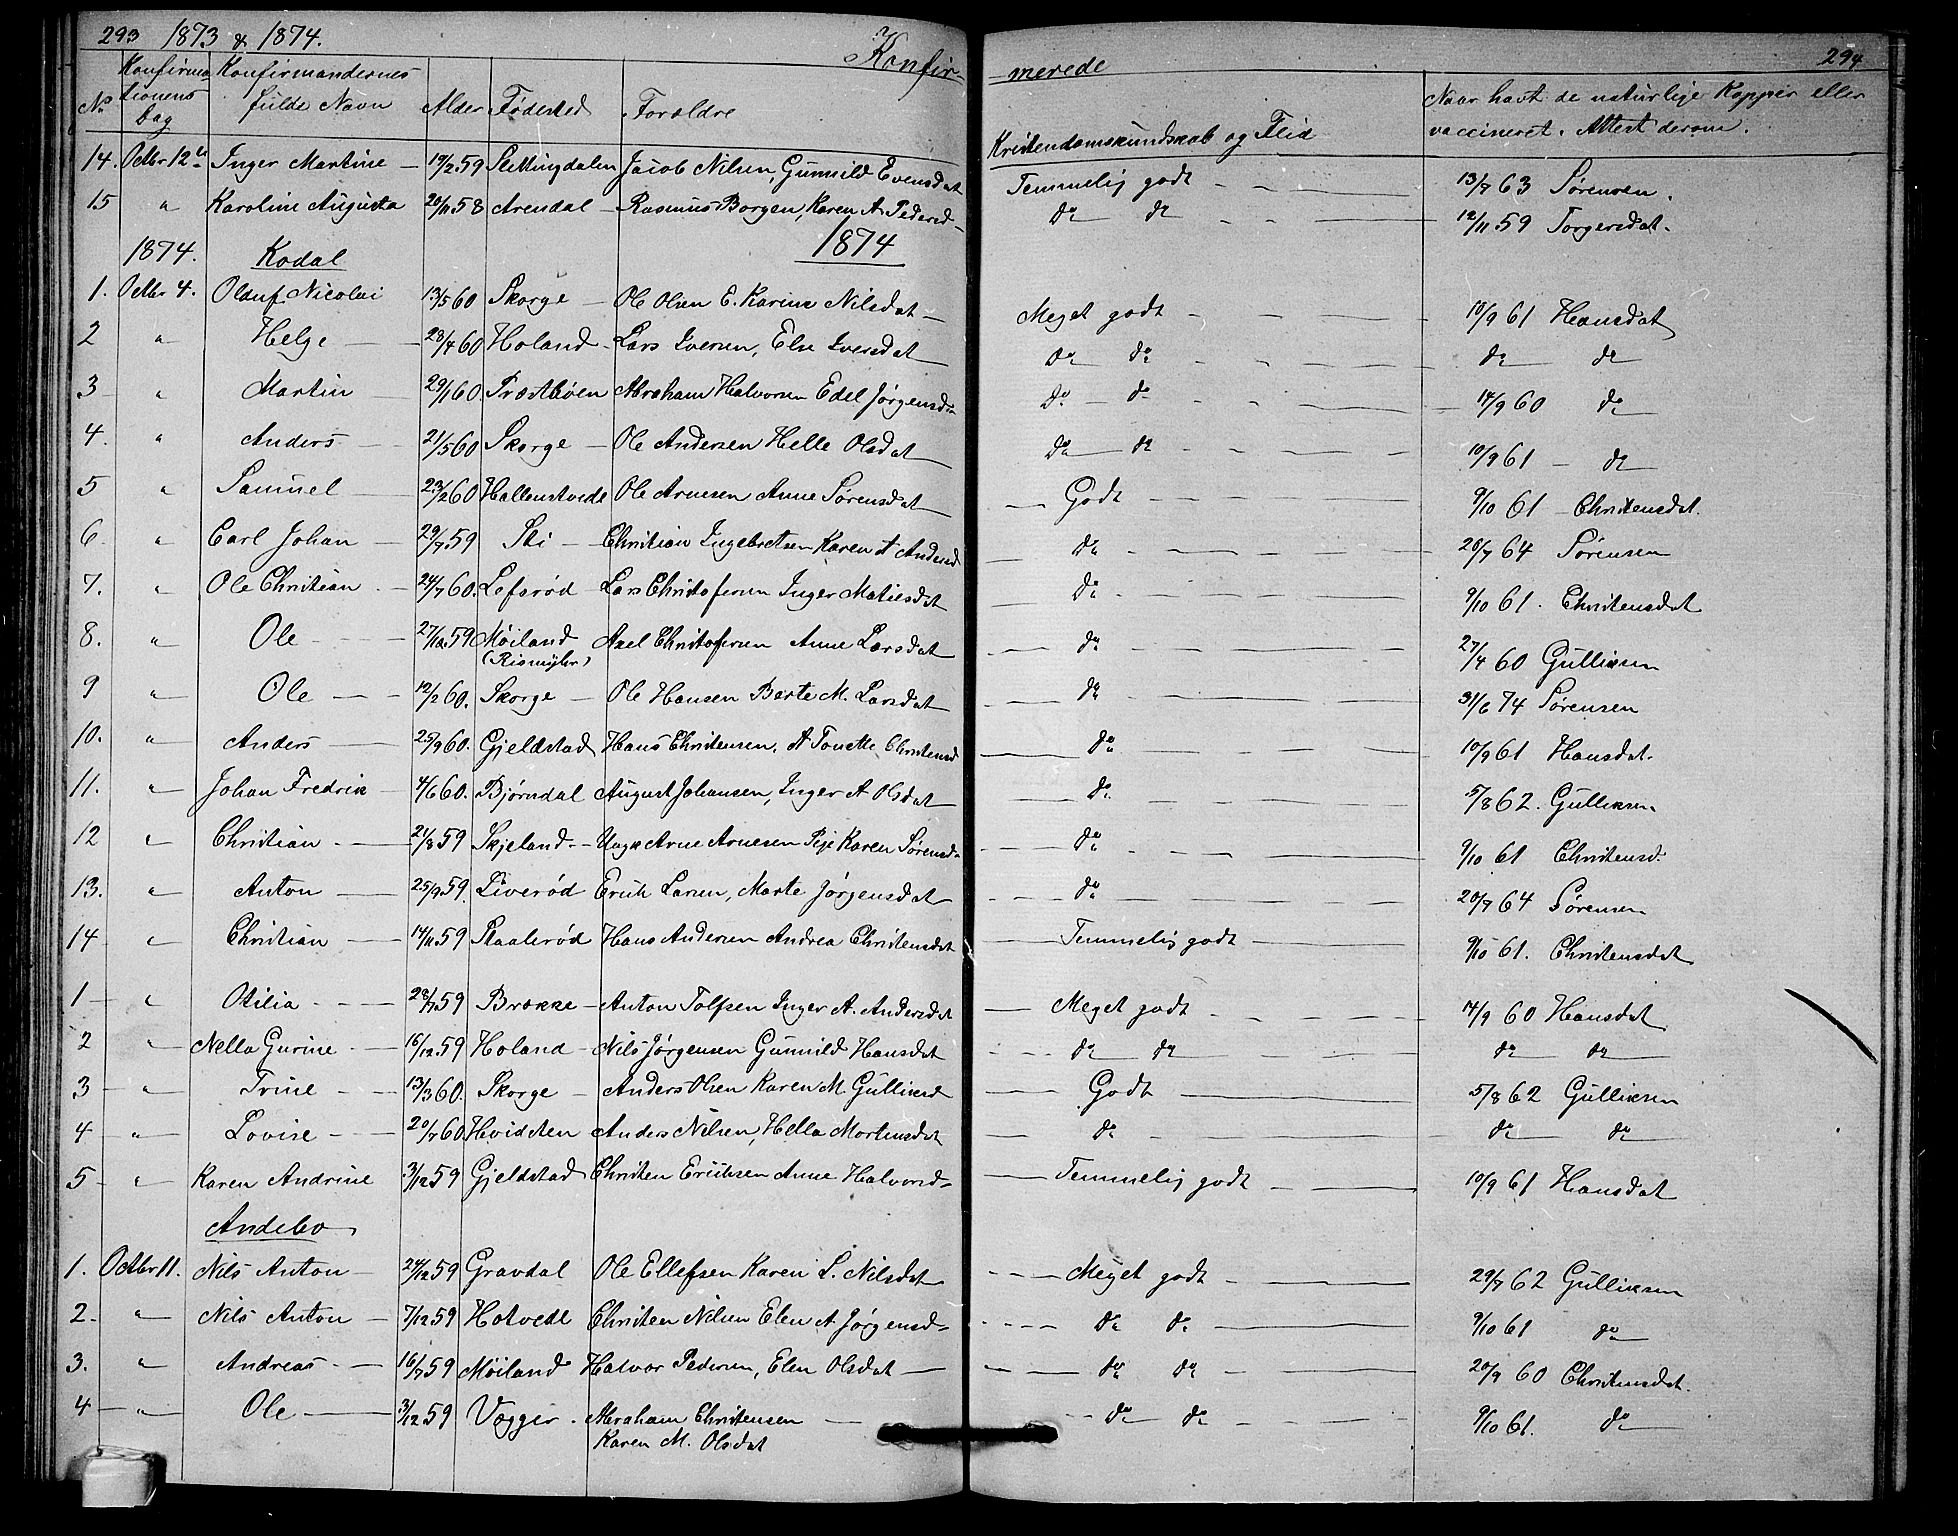 293 1873 & 1874. Konfir- merede 294
No Konfirmationens Dag Konfirmandernes fulde Navn Alder Fødested Forældre Kristendomskundskab og Flid Naar havt de naturlige Kopper eller vaccineret. Attest derom.
14. Octbr 12te Inger Martine — 19/2 59 Slettingdalen Jacob Nilsen, Gunnild Evensdat Temmelig godt 13/7 63 Sørensen.
15 " Karoline Augusta 20/11 58 Arendal — Rasmus Borgen, Karen A. Pedersd. do do 12/11 59 Torgersdat.
1874. Kodal 1874
1. Octbr 4. Oluf Nicolai 13/5 60 Skorge — Ole Olsen E. Karine Nilsdat — Meget godt 10/9 61 Hansdat
2 " Helge — 23/4 60 Holand — Lars Iversen, Else Iversdat do do do do
3 " Martin 29/1 60. Præstbøen Abraham Halvorsen Edel Jørgensd. do do 14/9 60 do
4. " Anders — 21/5 60 Skorge — Ole Andersen Helle Olsdat do do 10/9 61 — do
5 " Samuel — 23/2 60 Hallenstvedt Ole Arnesen Anne Sørensdat — Godt 9/10 61 Christensdat.
6. " Carl Johan — 29/7 59 Sti — Christian Ingebretsen Karen A Andersd do 26/7 64 Sørensen
7. " Ole Christian 24/7 60. Lefsrød Lars Christofersen Inger Matiesdat do 9/10 61. Christensdat
8. " Ole — 27/12 59 Møiland (Rismyhr) Axel Christofersen Anne Larsdat do 27/4 60 Gulliksen
9 " Ole — 12/2 60. Skorge — Ole Hansen Berte M. Larsdat do 31/6 74 Sørensen
10. " Anders — 25/9 60. Gjeldstad Hans Christensen, A Tonette Christensd do 10/9 61 Hansdat.
11. " Johan Fredrik 4/6 60. Bjørndal August Johansen, Inger A Olsdat do 5/8 62. Gulliksen
12 " Christian — 21/8 59 Skjeland — Ungk Arne Arnesen Pige Karen Sørensd. do 9/10 61 Christensd.
13. " Anton — 25/9 59. Liverød Erich Larsen, Marte Jørgensdat do 20/7 64 Sørensen
14 " Christian — 14/11 59 Staalerød Hans Andersen Andrea Christensdat Temmelig godt 9/10 61. Christensdat
1 " Otilia — 28/7 59 Brække — Anton Tolfsen Inger A. Andersdat Meget godt 14/9 60 Hansdat
2 " Nella Gurine 16/12 59 Holand — Nils Jørgensen Gunnild Hansdat do do do do
3 " Trine — 13/3 60. Skorge — Anders Olsen Karen M. Gulliksd Godt 5/8 62 Gulliksen
4 " Lovise — 20/7 60 Hvidsten Anders Nilsen, Hella Mortensdat do do do
5 " Karen Andrine 3/12 59 Gjeldstad Christen Eriksen Anne Halvorsd. Temmelig godt 10/9 61 Hansdat
Andebo
1. Octbr 11. Nils Anton — 24/12 59 Gravdal Ole Ellefsen Karen L. Nilsdat Meget godt 29/7 62 Gulliksen
2. " Nils Anton — 7/12 59 Hotvedt Christen Nilsen Elen A Jørgensd. do do 9/10 61 do
3. " Andreas — 16/7 59 Møiland Halvor Pedersen, Elen Olsdat — do do 20/9 60 Christensdat.
4 " Ole — 3/12 59 Vegger. Abraham Christensen — do do 9/10 61. do
Karen M. Olsdat